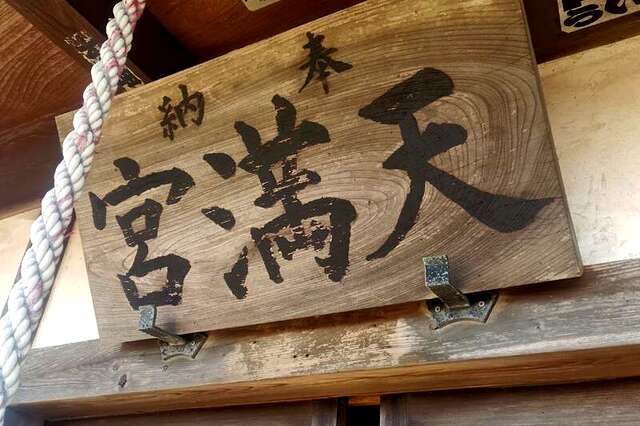 奉納
天満宮